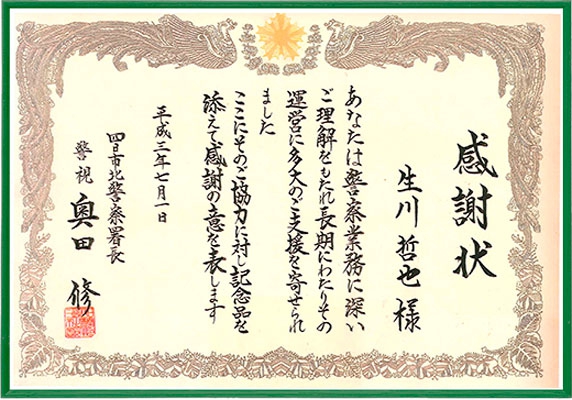 感謝状
生川哲也様
あなたは警察業務に深い
ご理解をもたれ長期にわたりその
運営に多大のご支援を寄せられ
ました
ここにそのご協力に対し記念品を
添えて感謝の意を表します
平成三年七月一日
四日市北警察署長
警視 奥田 修